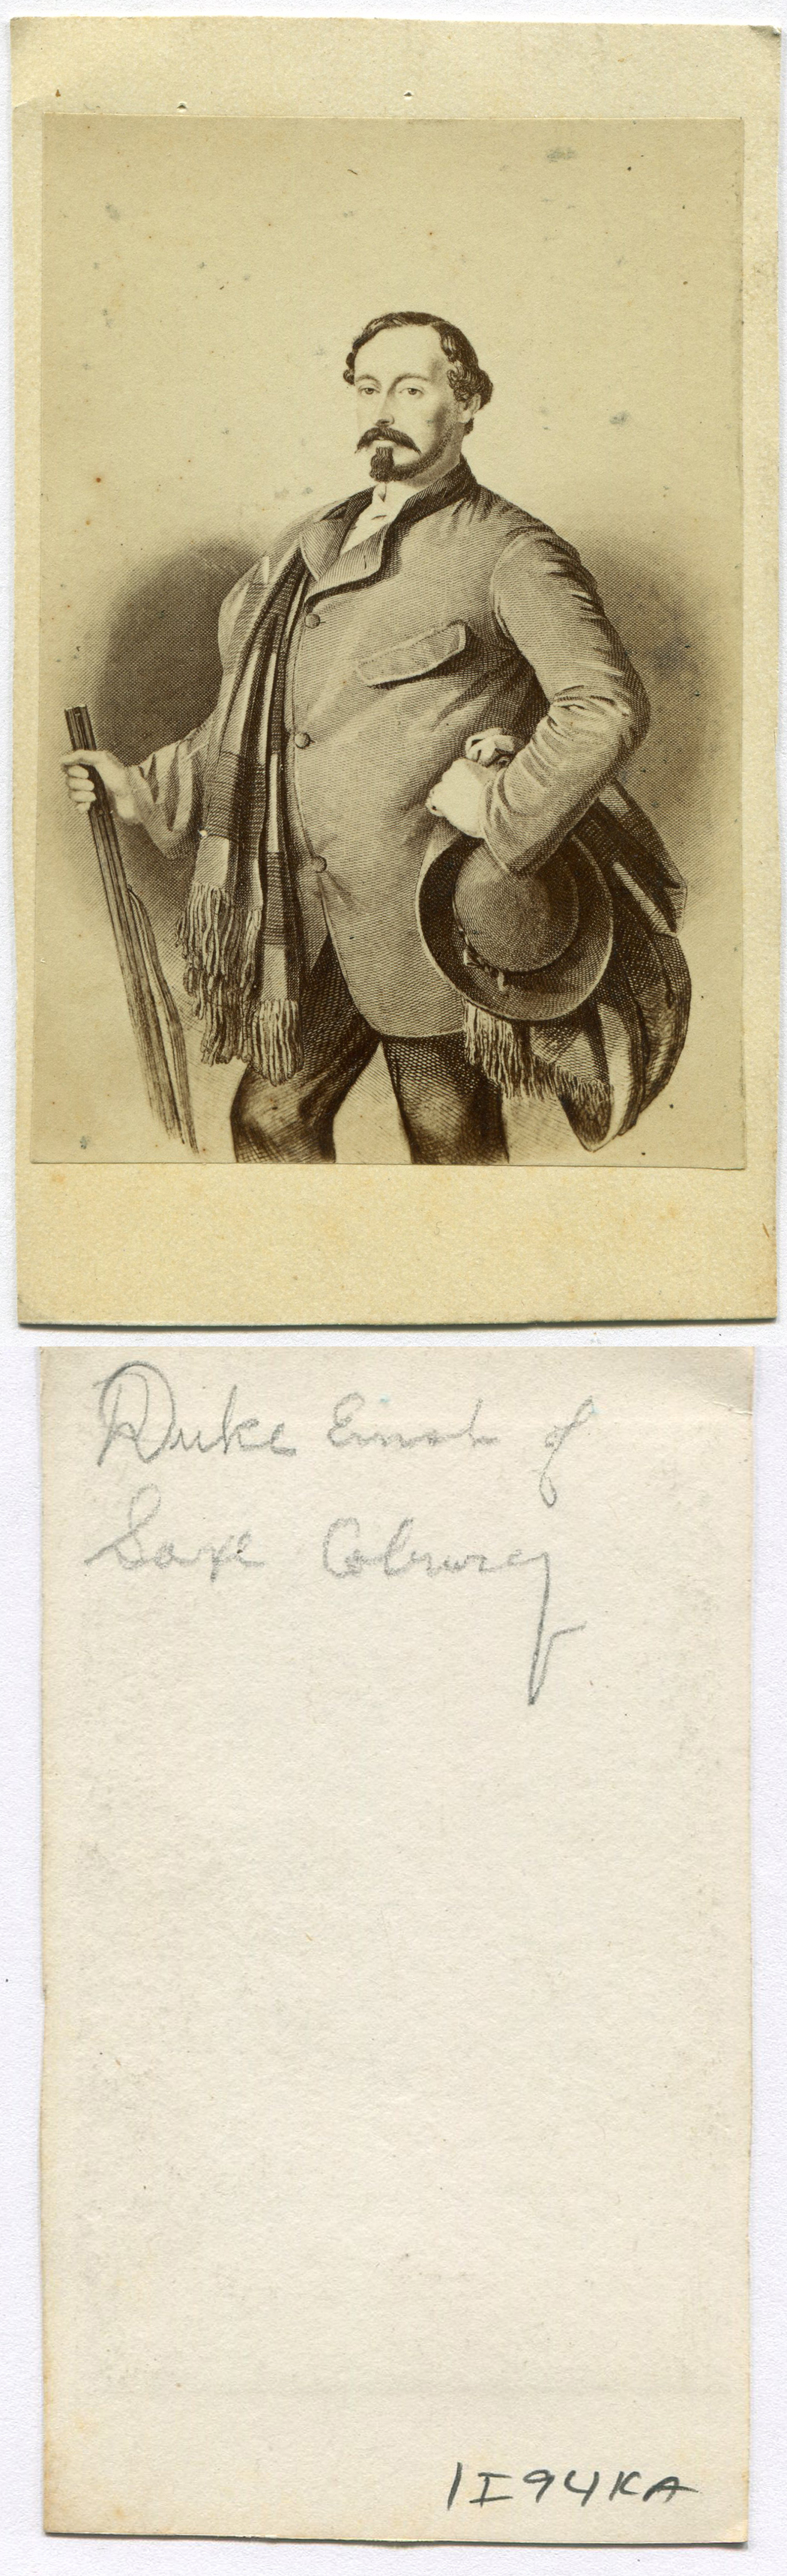 Duke Ernst of
Saxe Coburg
1I94KA